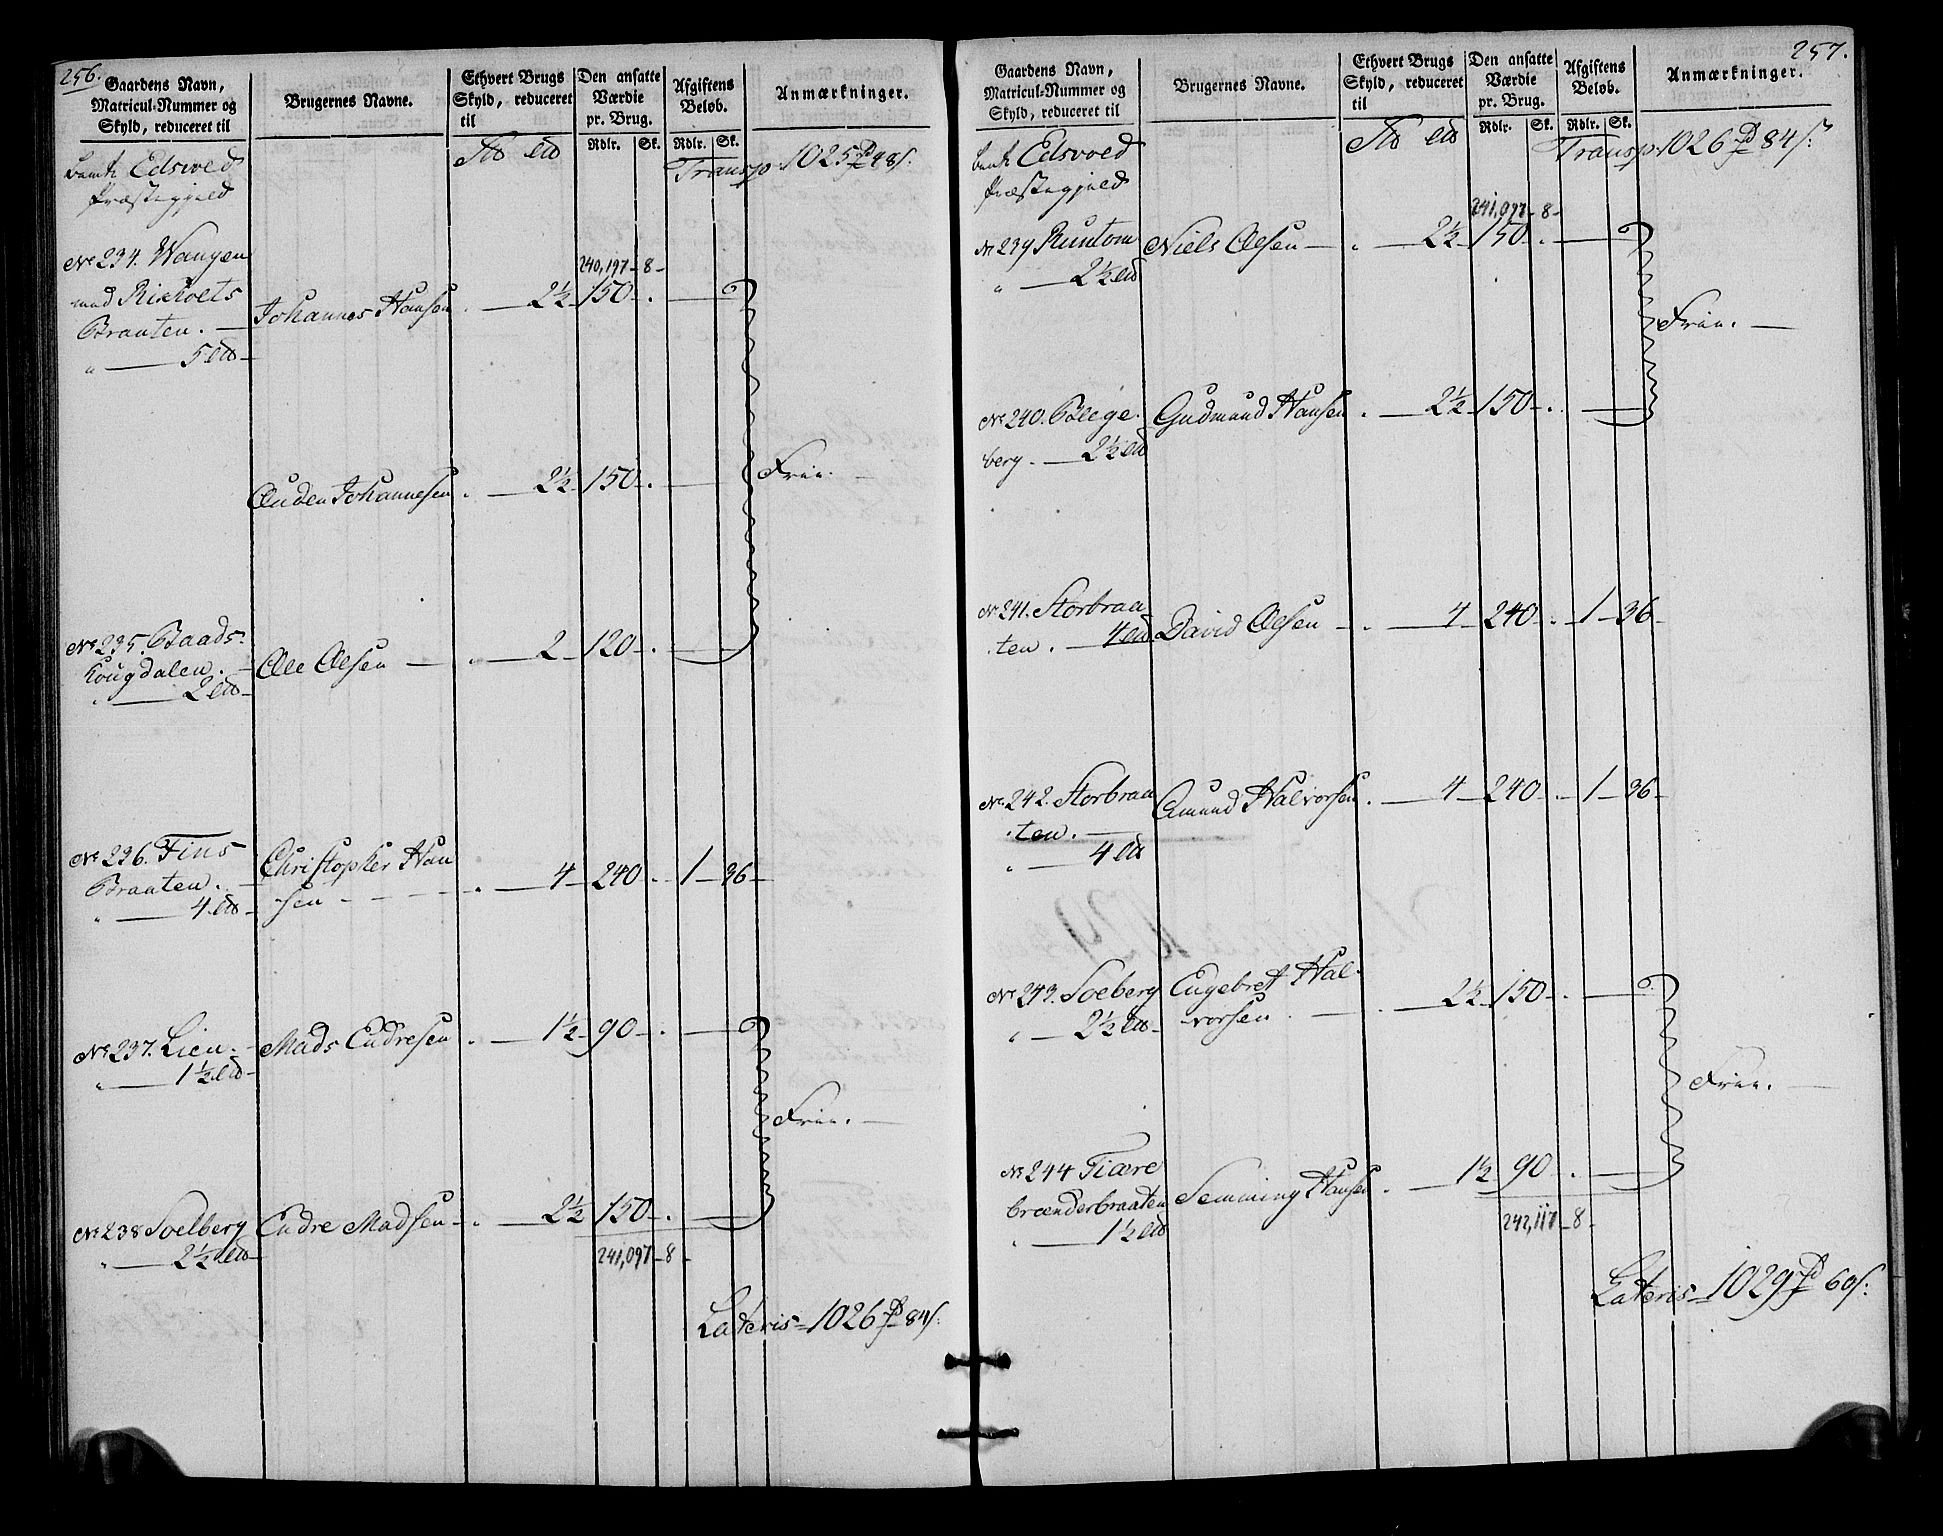 256.
Gaardens Navn,
Matricul-Nummer og
Skyld, reduceret til
Brugernes Navne.
Ethvert Brugs
Skyld, reduceret
til
Den ansatte
Værdie
pr. Brug.
Rdlr. Sk.
Afgiftens
Beløb.
Rdlr. Sk.
Anmærkninger.
Edsvoed
Præstegjeld
Transp. 1025 48
240,197 - 8 -
No 234. Wangen
med Rieholts
Braaten.
" 5
Johannes Hansen . 2½ 150 .
Auden Johannesen . 2½ 150 .
Frie.
No 235. Baads-
kougdalen.
" 2
Ole Olsen . 2 120 .
No 236. Fins
Braaten.
" 4
Christopher Han
sen . 4 240 . 1 36
No 237. Lien.
" 1½
Mads Endresen . 1½ 90 .
Frie.
No 238 Soelberg
" 2½
Endre Madsen . 2½ 150 .
241,097 - 8 -
Lateris 1026 84
257.
Gaardens Navn,
Matricul-Nummer og
Skyld, reduceret til
Brugernes Navne.
Ethvert Brugs
Skyld, reduceret
til
Den ansatte
Værdie
pr. Brug.
Rdlr. Sk.
Afgiftens
Beløb.
Rdlr. Sk.
Anmærkninger.
Edsvoed
Præstegjeld
Transp. 1026 84
241,097 - 8 -
No 239 Runtom
" 2½
Niels Olsen . 2½ 150 .
Frie.
No 240. Blege-
berg. 2½
Gudmund Hansen . 2½ 150 .
No 241. Storbraa
ten. 4
David Olsen . 4 240 . 1 36
No 242. Storbraa
ten.
" 4
Amund Halvorsen . 4 240 . 1 36
No 243. Soeberg
" 2½
Engebret Hal-
vorsen . 2½ 150 .
Frie.
No 244 Tiære
brænderbraaten
" 1½
Semming Hansen . 1½ 90 .
242,117 - 8 -
Lateris 1029 60